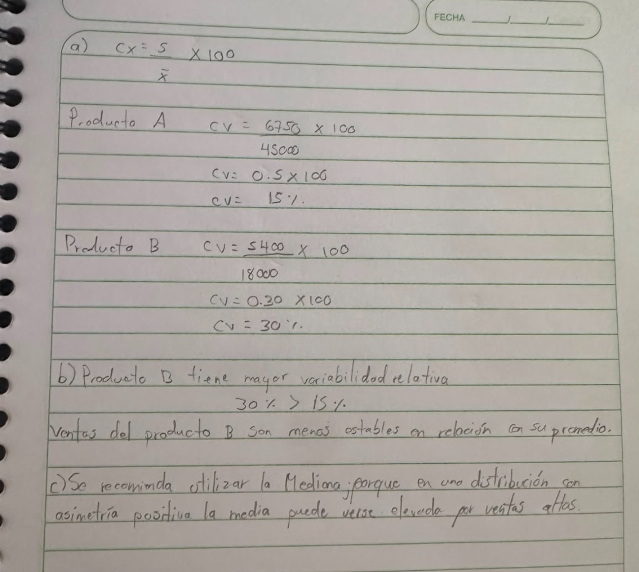 FECHA ___/___/___
a) CX = S/x̄ X 100
Producto A CV = 6750/45000 X 100
CV = 0.5 X 100
CV = 15%.
Producto B CV = 5400/18000 X 100
CV = 0.30 X 100
CV = 30%.
b) Producto B tiene mayor variabilidad relativa
30% > 15%
Ventas del producto B son menos estables en relación con su promedio.
c) Se recominda utilizar la Mediana; porque en una distribución con
asimetría positiva la media puede verse elevada por ventas altas.